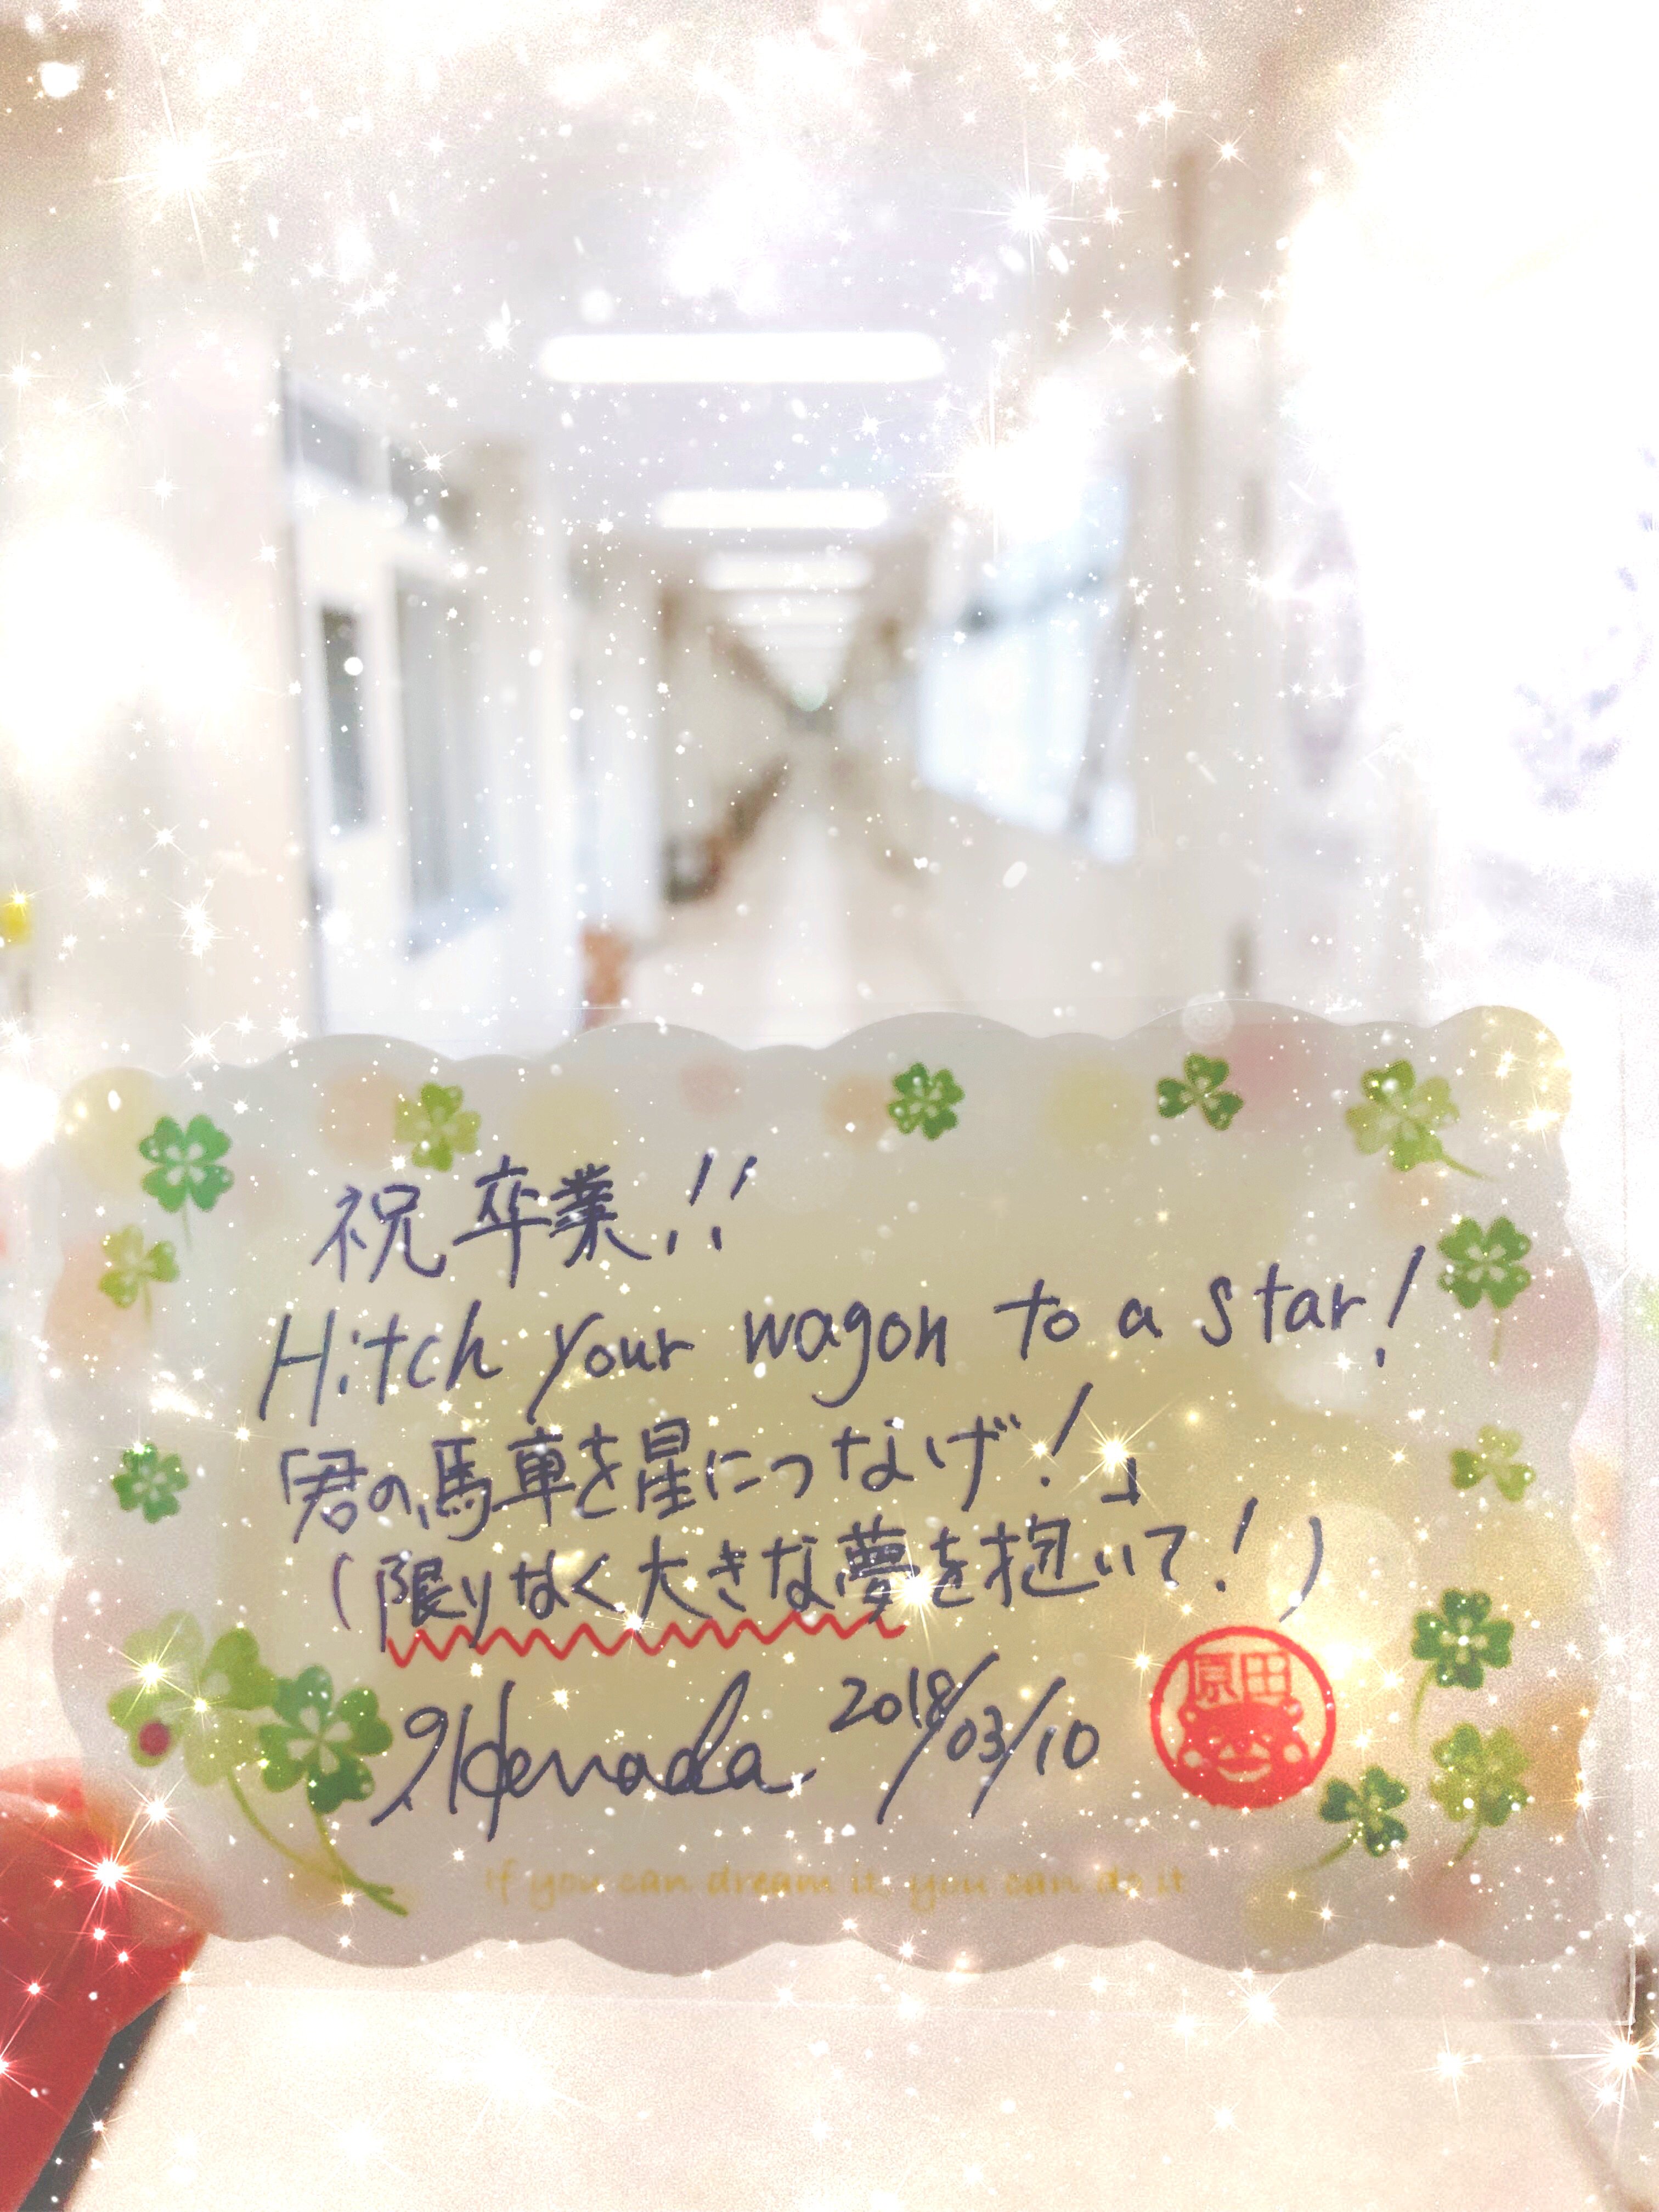 祝卒業!!
Hitch your wagon to a star!
「君の馬車を星につなげ!」
(限りなく大きな夢を抱いて!)
2018/03/10
原田
If you can dream it, you can do it